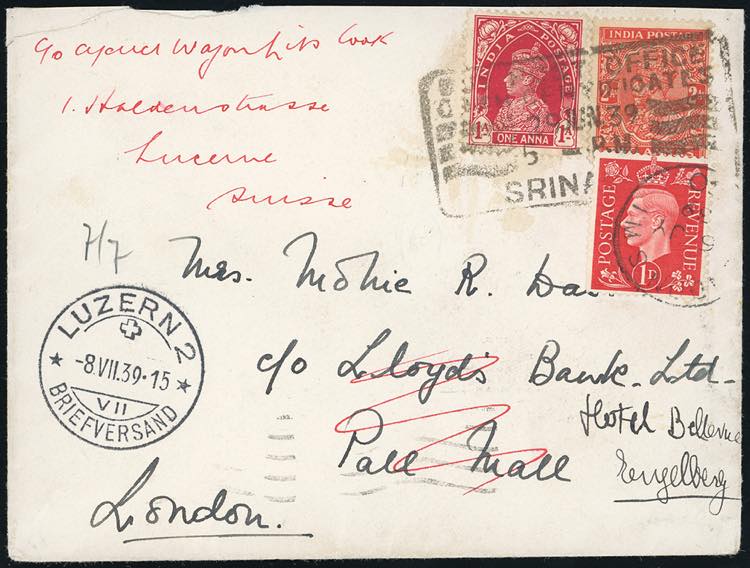 c/o Wagons Lits Cook
1. Haldenstrasse
Lucerne
Suisse
INDIA POSTAGE
1A 1A
ONE ANNA
INDIA POSTAGE
2 2
OFFICE
JUN. 39
5 P.M.
SRINA
POSTAGE REVENUE
1D
7/7
Mrs. Mollie R.
c/o Lloyds Bank Ltd
Pall Mall
London.
Hotel Bellevue
Engelberg
LUZERN 2
-8.VII.39·15
VII
BRIEFVERSAND